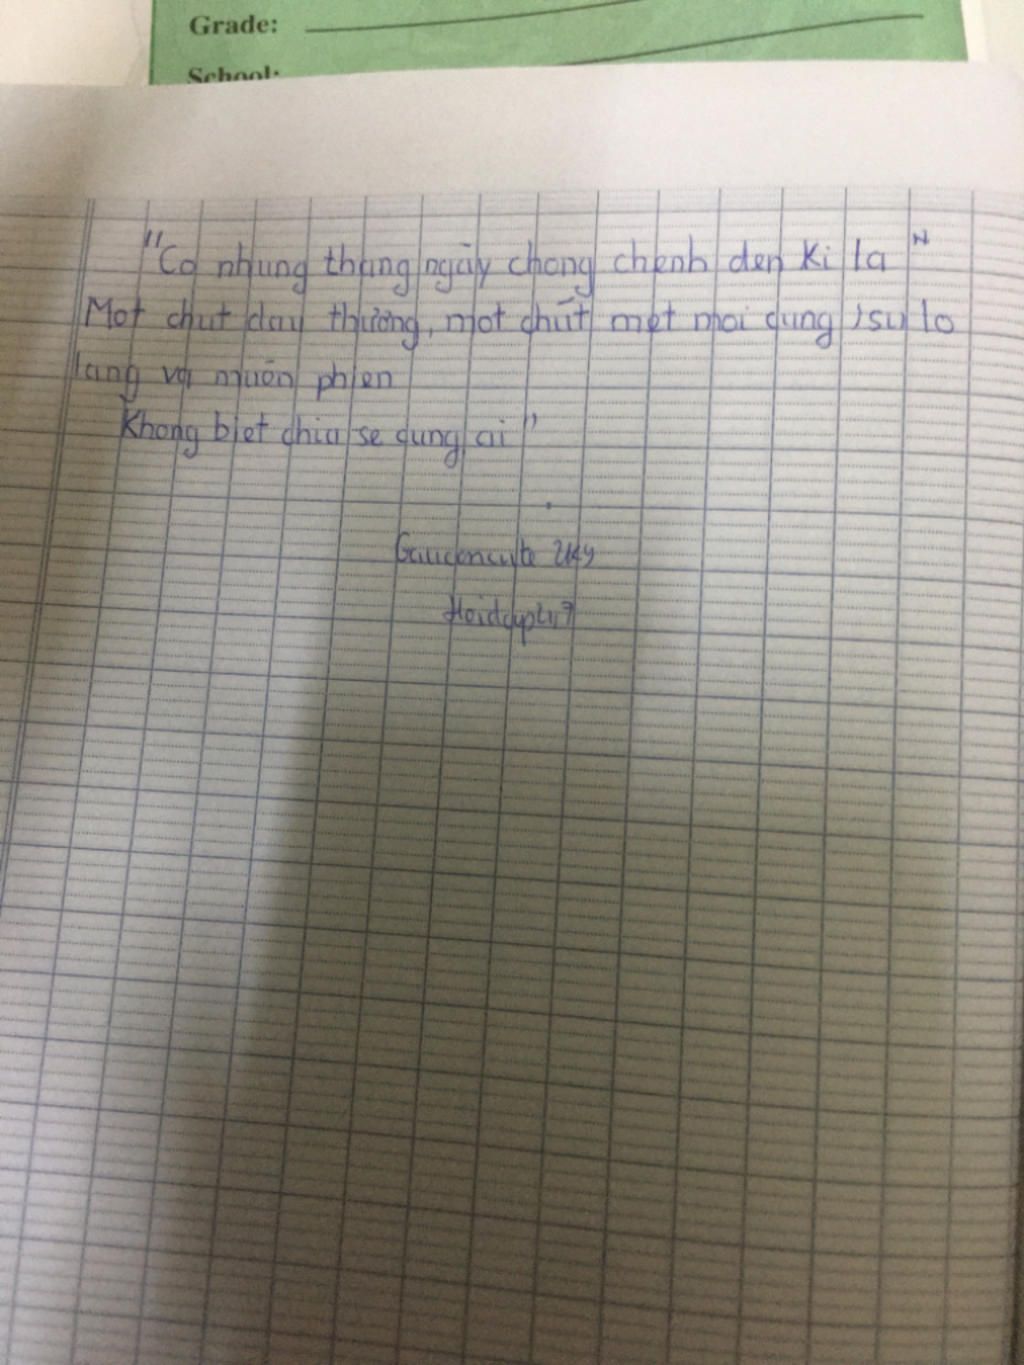 Grade:
School:
"Co nhung thang ngay chong chenh den ki la "
Mot chut dau thương, mot chút met moi cung, su lo
lang va muon phien
Khong biet chia se cung ai "
Gaucencute 2k9
Hoidap247